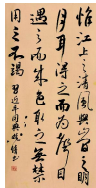 惟江上之清風與山間之明
月耳得之而為聲目
遇之而成色取之無禁
用之不竭 習近平用典